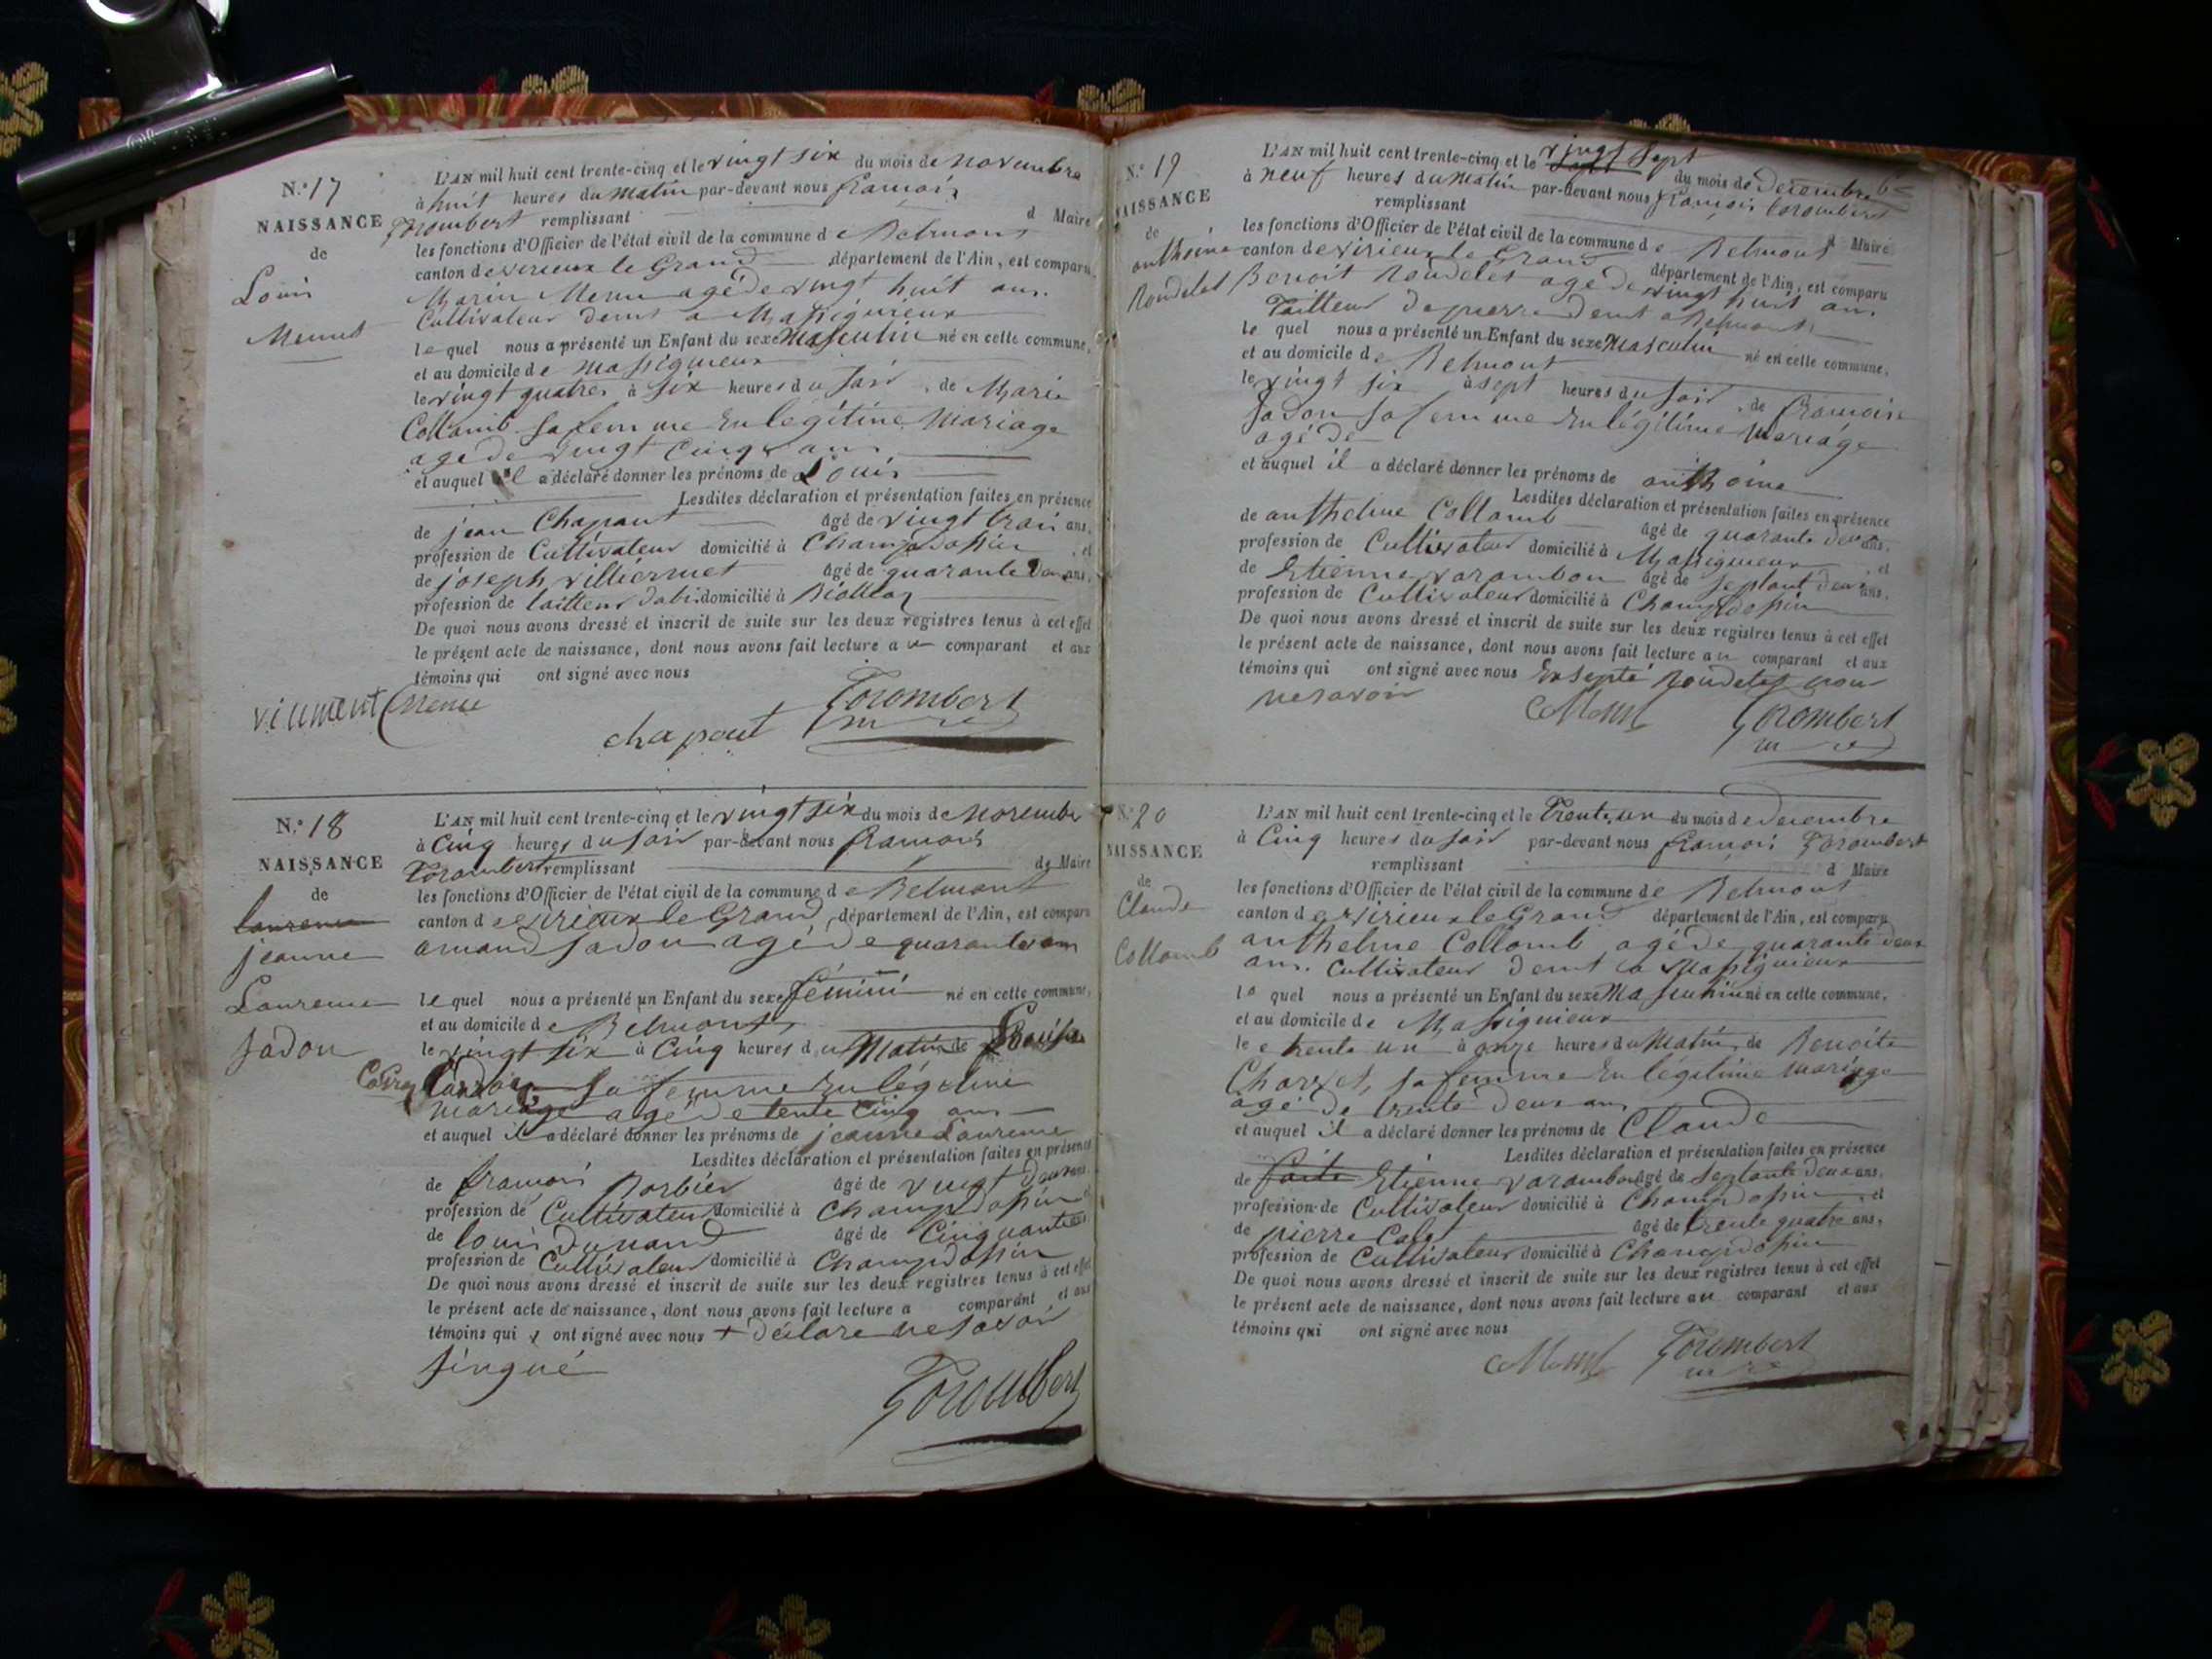 N.° 17
NAISSANCE
de
Louis
Menut
L'AN mil huit cent trente-cinq et le vingt six du mois de novembre
à huit heures du matin par-devant nous françois
Trombert remplissant d Maire
les fonctions d'Officier de l'état civil de la commune de Belmont
canton de virieux le Grand département de l'Ain, est comparu
Marin Menu agé de vingt huit ans
Cultivateur demt a Massignieux
lequel nous a présenté un Enfant du sexe Masculin né en cette commune,
et au domicile de Massignieux
le vingt quatre à six heures du soir, de Marie
Collomb sa femme en legitime Mariage
agé de vingt cinq ans
et auquel il a déclaré donner les prénoms de Louis
Lesdites déclaration et présentation faites en présence
de jean Chapout âgé de vingt trois ans,
profession de Cultivateur domicilié à Champdossin, et
de joseph villiermet âgé de quarante deux ans,
profession de tailleur dabi domicilié à
De quoi nous avons dressé et inscrit de suite sur les deux registres tenus à cet effet
le présent acte de naissance, dont nous avons fait lecture au comparant et aux
témoins qui ont signé avec nous
Menu
chapout Trombert
N.° 18
NAISSANCE
de
laurence
jeanne
Laurence
Jadon
L'AN mil huit cent trente-cinq et le vingt six du mois de Novembre
à Cinq heures du soir par-devant nous françois
Trombert remplissant de Maire
les fonctions d'Officier de l'état civil de la commune de Belmont
canton de virieux le Grand, département de l'Ain, est comparu
amand jadon agé de quarante ans
lequel nous a présenté un Enfant du sexe féminin né en cette commune,
et au domicile de Belmont
le vingt six à Cinq heures du Matin de Louise
sa femme en légitime
mariage agé de trente cinq ans
et auquel il a déclaré donner les prénoms de jeanne Laurence
Lesdites déclaration et présentation faites en présence
de françois Barbier âgé de vingt deux ans,
profession de Cultivateur domicilié à Champdossin et
de louis Dunand âgé de Cinquante
profession de Cultivateur domicilié à Champdossin
De quoi nous avons dressé et inscrit de suite sur les deux registres tenus à cet effet
le présent acte de naissance, dont nous avons fait lecture a comparant et aux
témoins qui ont signé avec nous + déclare ne savoir
singné
Trombert
N.° 19
NAISSANCE
de
anthoine
Roudelet
L'AN mil huit cent trente-cinq et le vingt sept du mois de Decembre
à neuf heures du Matin par-devant nous françois Trombert
remplissant d Maire
les fonctions d'Officier de l'état civil de la commune de Belmont
canton de virieux le Grand département de l'Ain, est comparu
Benoit Roudelet agé de vingt huit ans
Tailleur de pierre demt a Belmont
lequel nous a présenté un Enfant du sexe Masculin né en cette commune,
et au domicile de Belmont
le vingt six à sept heures du soir, de françoise
Jadon sa femme en légitime Mariage
agé de
et auquel il a déclaré donner les prénoms de anthoine
Lesdites déclaration et présentation faites en présence
de anthelme Collomb âgé de quarante deux ans,
profession de Cultivateur domicilié à Massignieux, et
de Etienne varambon âgé de septant deux ans,
profession de Cultivateur domicilié à Champdossin
De quoi nous avons dressé et inscrit de suite sur les deux registres tenus à cet effet
le présent acte de naissance, dont nous avons fait lecture au comparant et aux
témoins qui ont signé avec nous Exsepté Roudelet pour
ne savoir
Collomb Trombert
N.° 20
NAISSANCE
de
Claude
Collomb
L'AN mil huit cent trente-cinq et le Trente un du mois de decembre
à Cinq heures du soir par-devant nous françois Trombert
remplissant d Maire
les fonctions d'Officier de l'état civil de la commune de Belmont
canton de virieux le Grand département de l'Ain, est comparu
anthelme Collomb agé de quarante deux
ans. Cultivateur demt a Massignieux
lequel nous a présenté un Enfant du sexe Masculin né en cette commune,
et au domicile de Massignieux
le trente un à onze heures du Matin, de Benoite
Charvet, sa femme en légitime mariage
agé de trente deux ans
et auquel il a déclaré donner les prénoms de Claude
Lesdites déclaration et présentation faites en présence
de Etienne varambon âgé de septante deux ans,
profession de Cultivateur domicilié à Champdossin, et
de pierre âgé de trente quatre ans,
profession de Cultivateur domicilié à Champdossin
De quoi nous avons dressé et inscrit de suite sur les deux registres tenus à cet effet
le présent acte de naissance, dont nous avons fait lecture au comparant et aux
témoins qui ont signé avec nous
Collomb Trombert